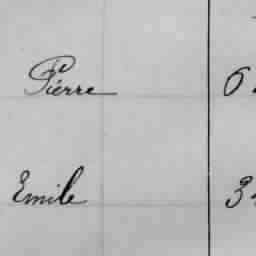 Pierre 6
Emile 3